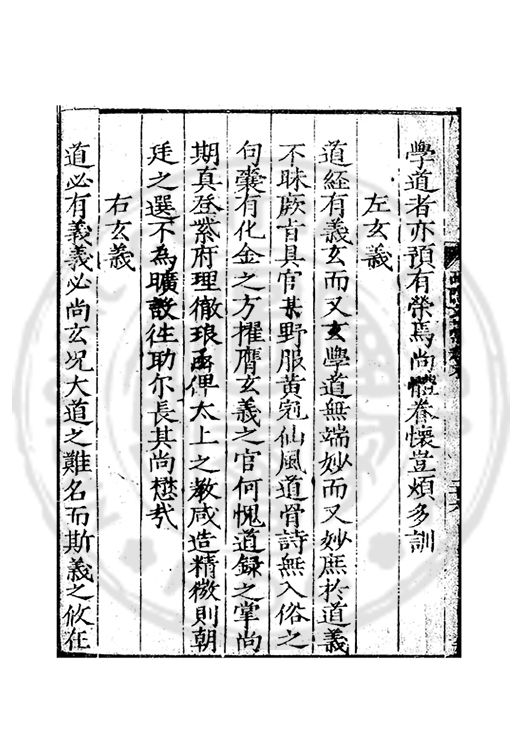 學道者亦預有榮焉尚體眷懷豈煩多訓
左玄義
道經有義玄而又玄學道無端妙而又妙庶於道義
不昧厥旨具官某野服黃冠仙風道骨詩無入俗之
句囊有化金之方擢膺玄義之官何愧道錄之掌尚
期真登紫府理徹琅函俾太上之教咸造精微則朝
廷之選不為曠設往助尔長其尚懋哉
右玄義
道必有義義必尚玄况大道之難名而斯義之攸在